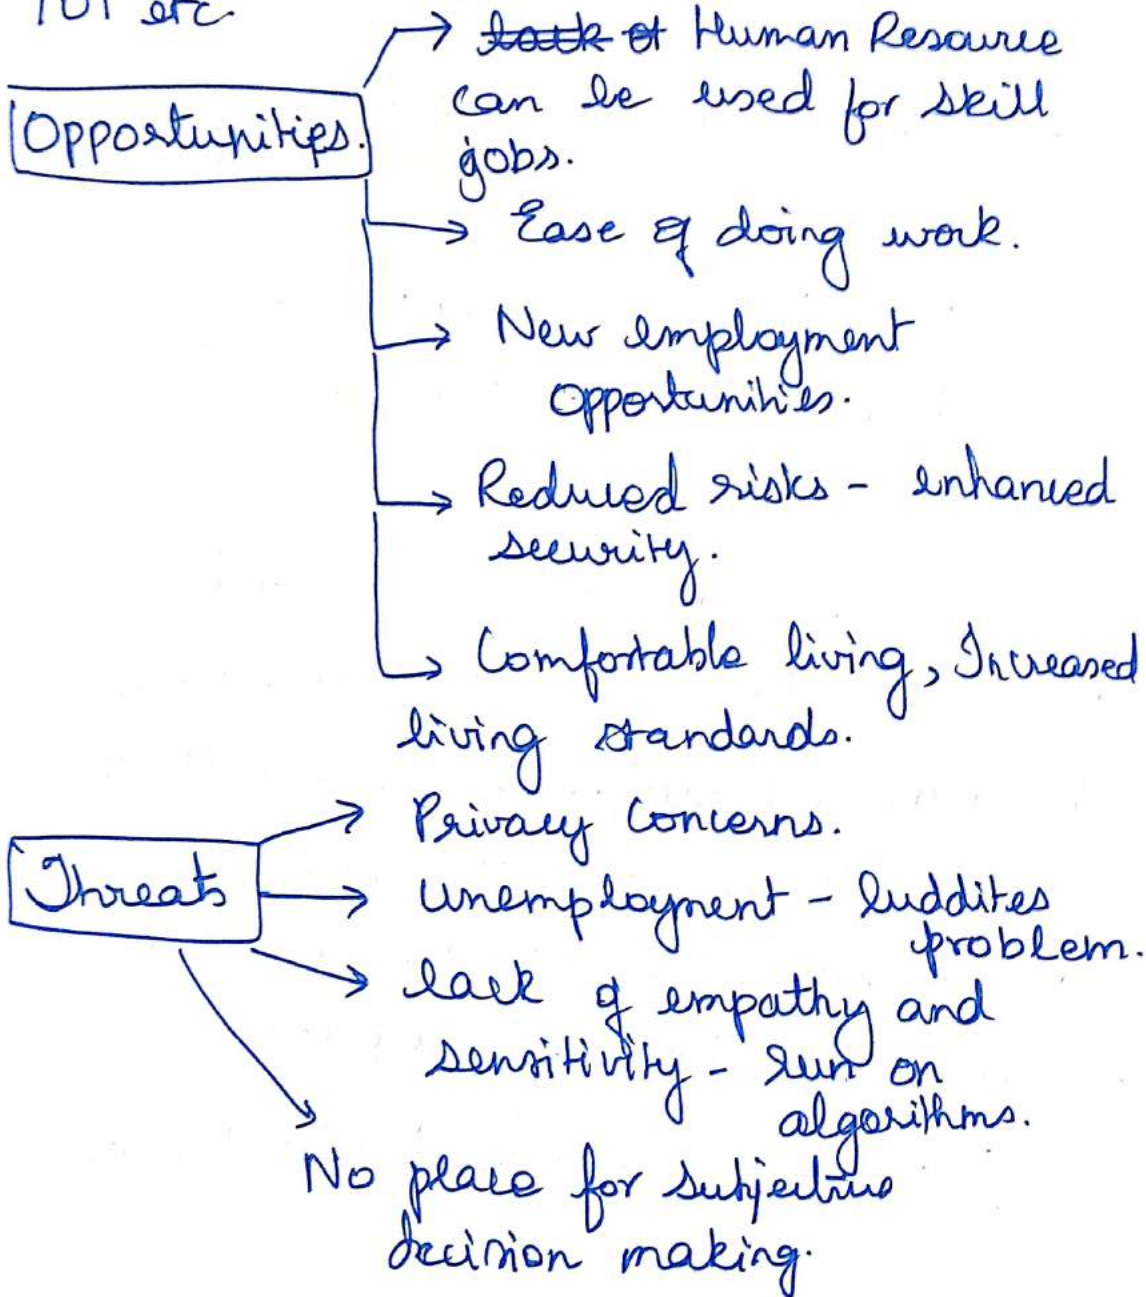 etc
Human Resource
Opportunities.
can be used for skill
jobs.
Ease of doing work.
New employment
opportunities.
Reduced risks - enhanced
security.
Comfortable living, Increased
living standards.
Privacy Concerns.
Threats
Unemployment - luddites
problem.
lack of empathy and
sensitivity - run on
algorithms.
No place for subjective
decision making.